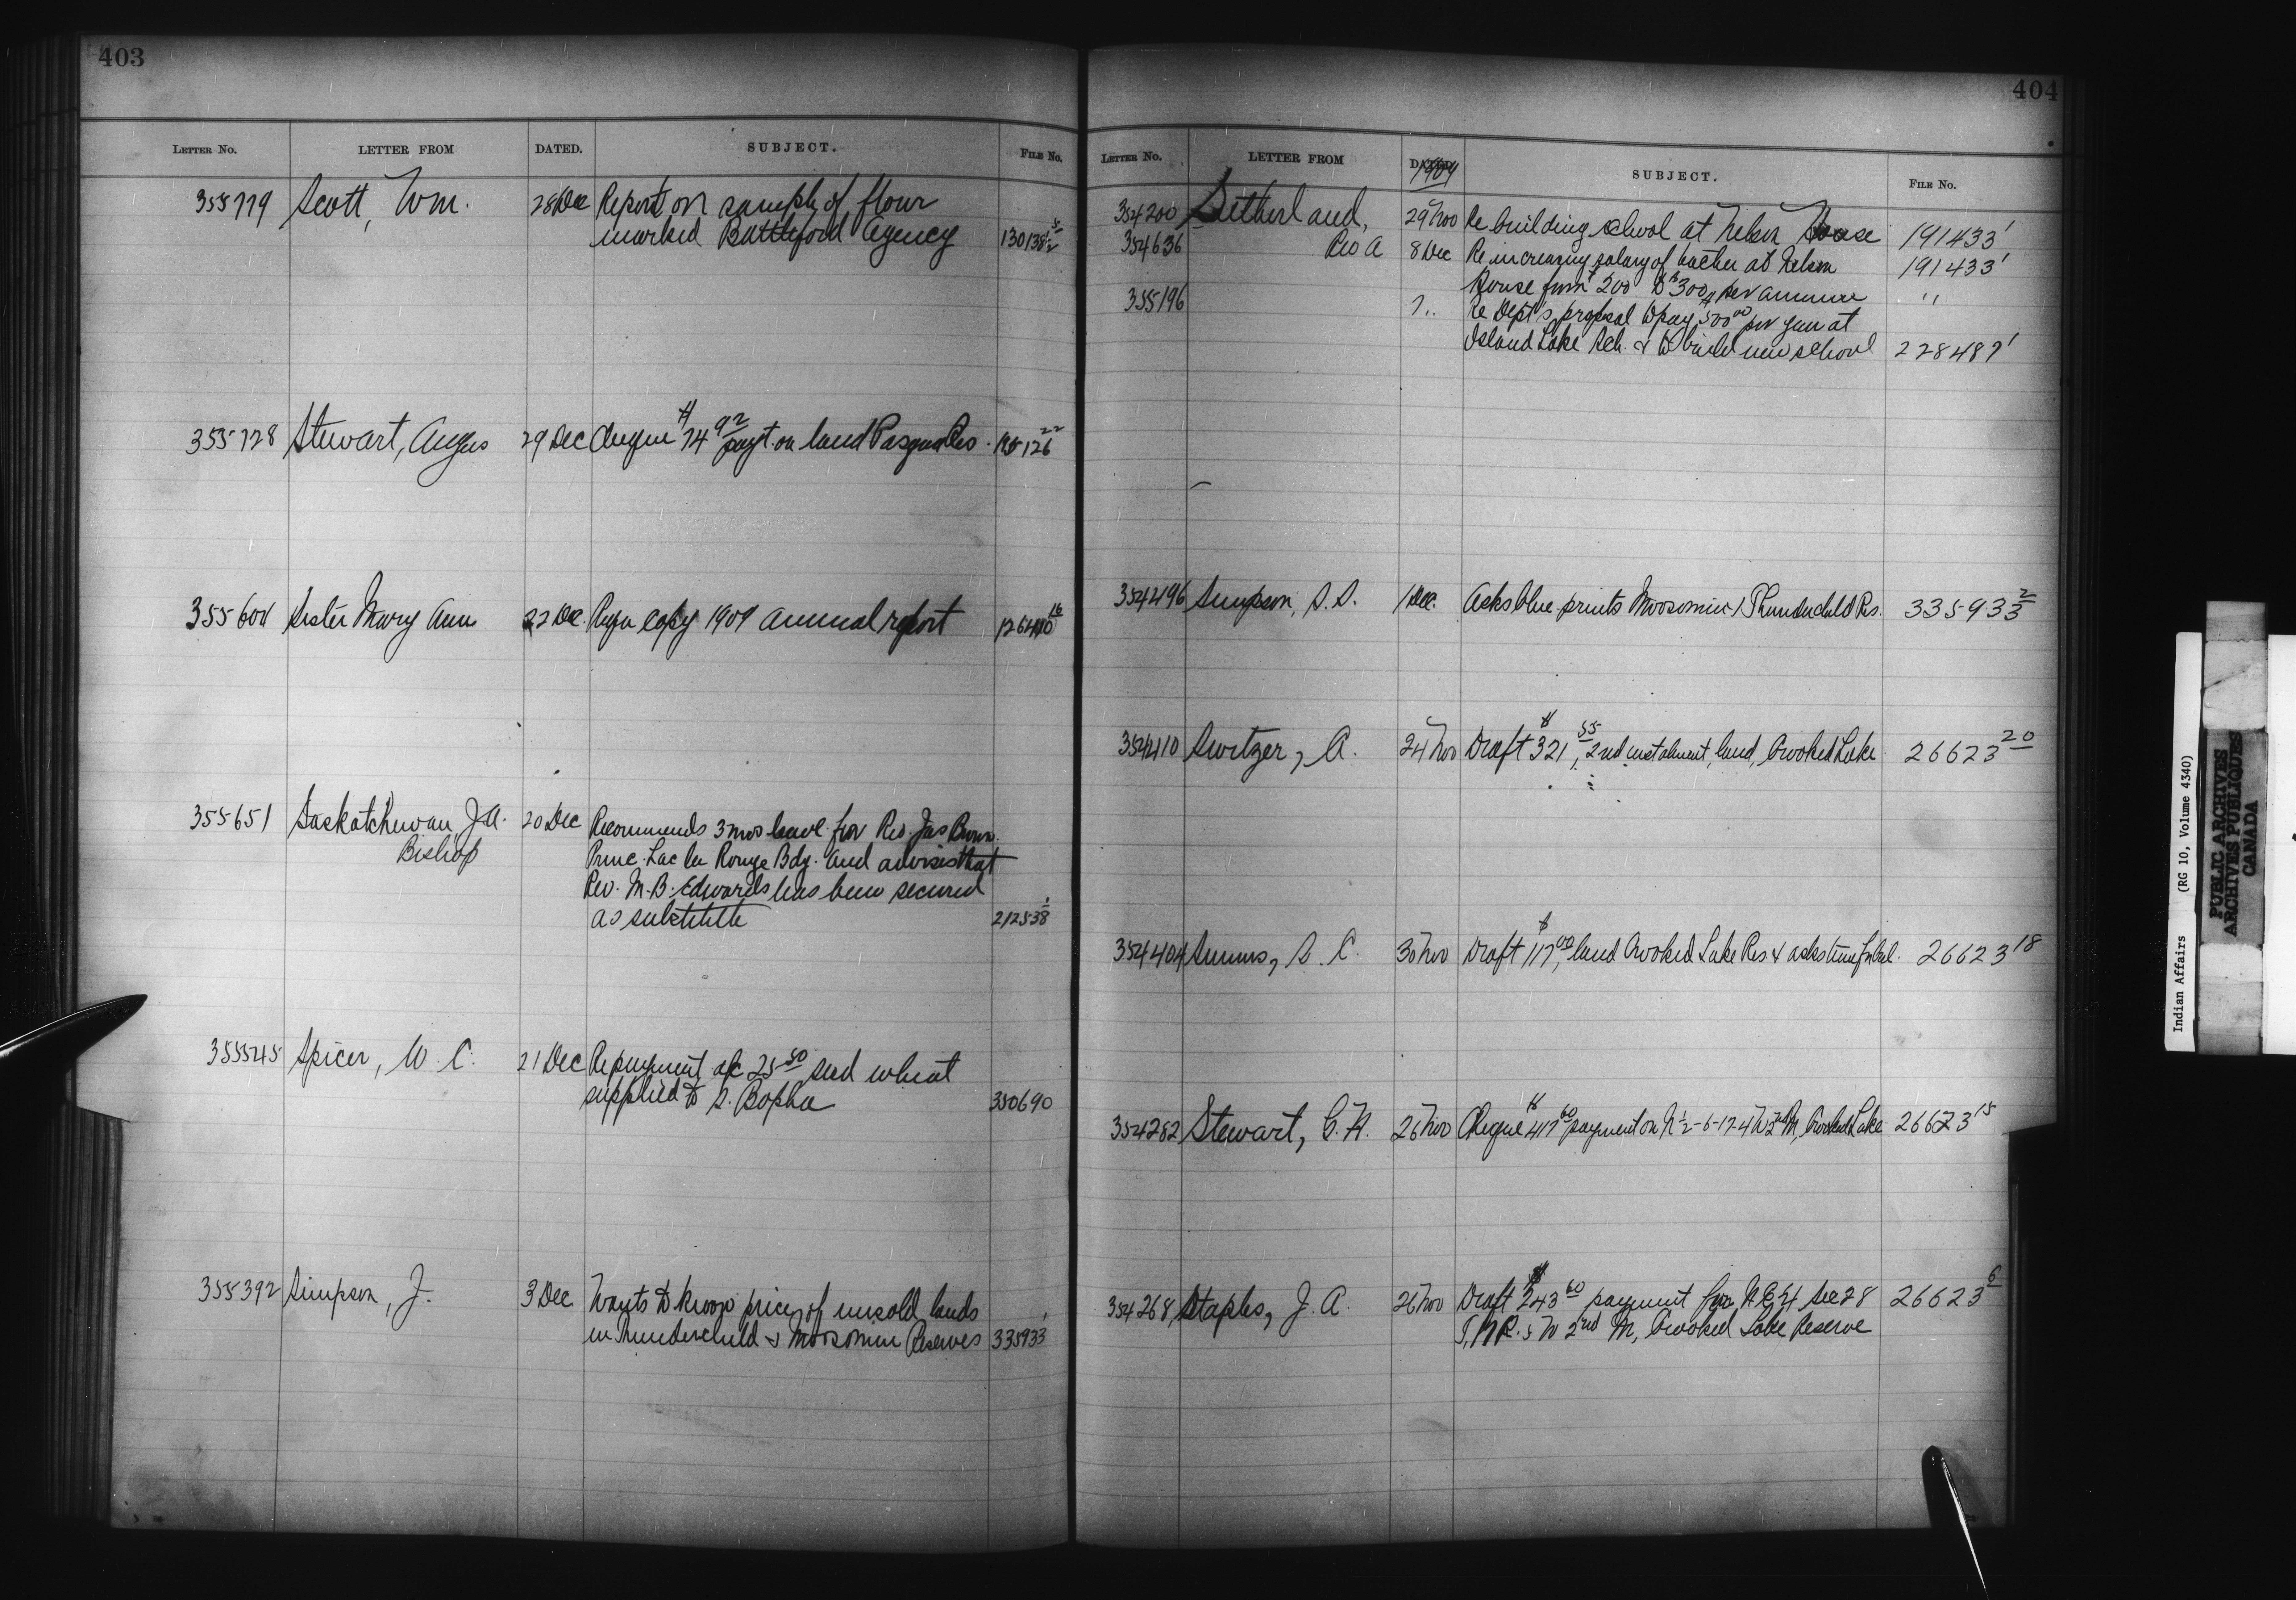 403
LETTER No. LETTER FROM DATED. SUBJECT. FILE No.
355779 Scott, Wm. 28 Dec Report on sample of flour
marked Battleford Agency 130138
355728 Stewart, Angus 29 Dec Cheque $74 92 payt. on land Pasqua Res. 22
355604 Sister Mary Ann 22 Dec. copy 1909 annual report 16
355651 Saskatchewan, J.A. 20 Dec Recommends 3 mos leave for Rev. Jas Brown
Bishop Princ. Lac la Ronge Bdg. and advises that
Rev. M.B. Edwards has been secured
as substitute 212538 1
355545 Spicer, W. C. 21 Dec Re payment a/c 25 50 seed wheat
supplied to S. 350690
355392 Simpson, J. 3 Dec Wants to know prices of unsold lands
in Thunderchild & Moosomin Reserves 335933 1
404
LETTER No. LETTER FROM 1909 SUBJECT. FILE No.
354200 29 Nov Re building school at Nelson House 191433 1
354636 Rev A 8 Dec Re increasing salary of teacher at Nelson 191433 1
House from 200 to $300 per annum "
355196 7 .. Re Dept's proposal to pay 500 00 per year at
Island Lake Sch. & to build new school 228487 1
354496 Simpson, S.S. 1 Dec. Asks blue prints Moosomin & Thunderchild Res. 335933 2
354410 Switzer, A. 24 Nov Draft $321 55, 2nd instalment, land, Crooked Lake 26623 20
354404 Simms, S. C. 30 Nov Draft $117 00, land Crooked Lake Res & asks time for bal. 26623 18
354282 Stewart, C. H. 26 Nov Cheque $417 60 payment on N ½-6-17-4 W 2nd M, Crooked Lake 26623 15
354268 Staples, J. A. 26 Nov Draft $243 60 payment for N.E.¼ Sec 28
W 2nd M, Crooked Lake Reserve 26623 6
Indian Affairs (RG 10, Volume 4340)
PUBLIC ARCHIVES
ARCHIVES PUBLIQUES
CANADA